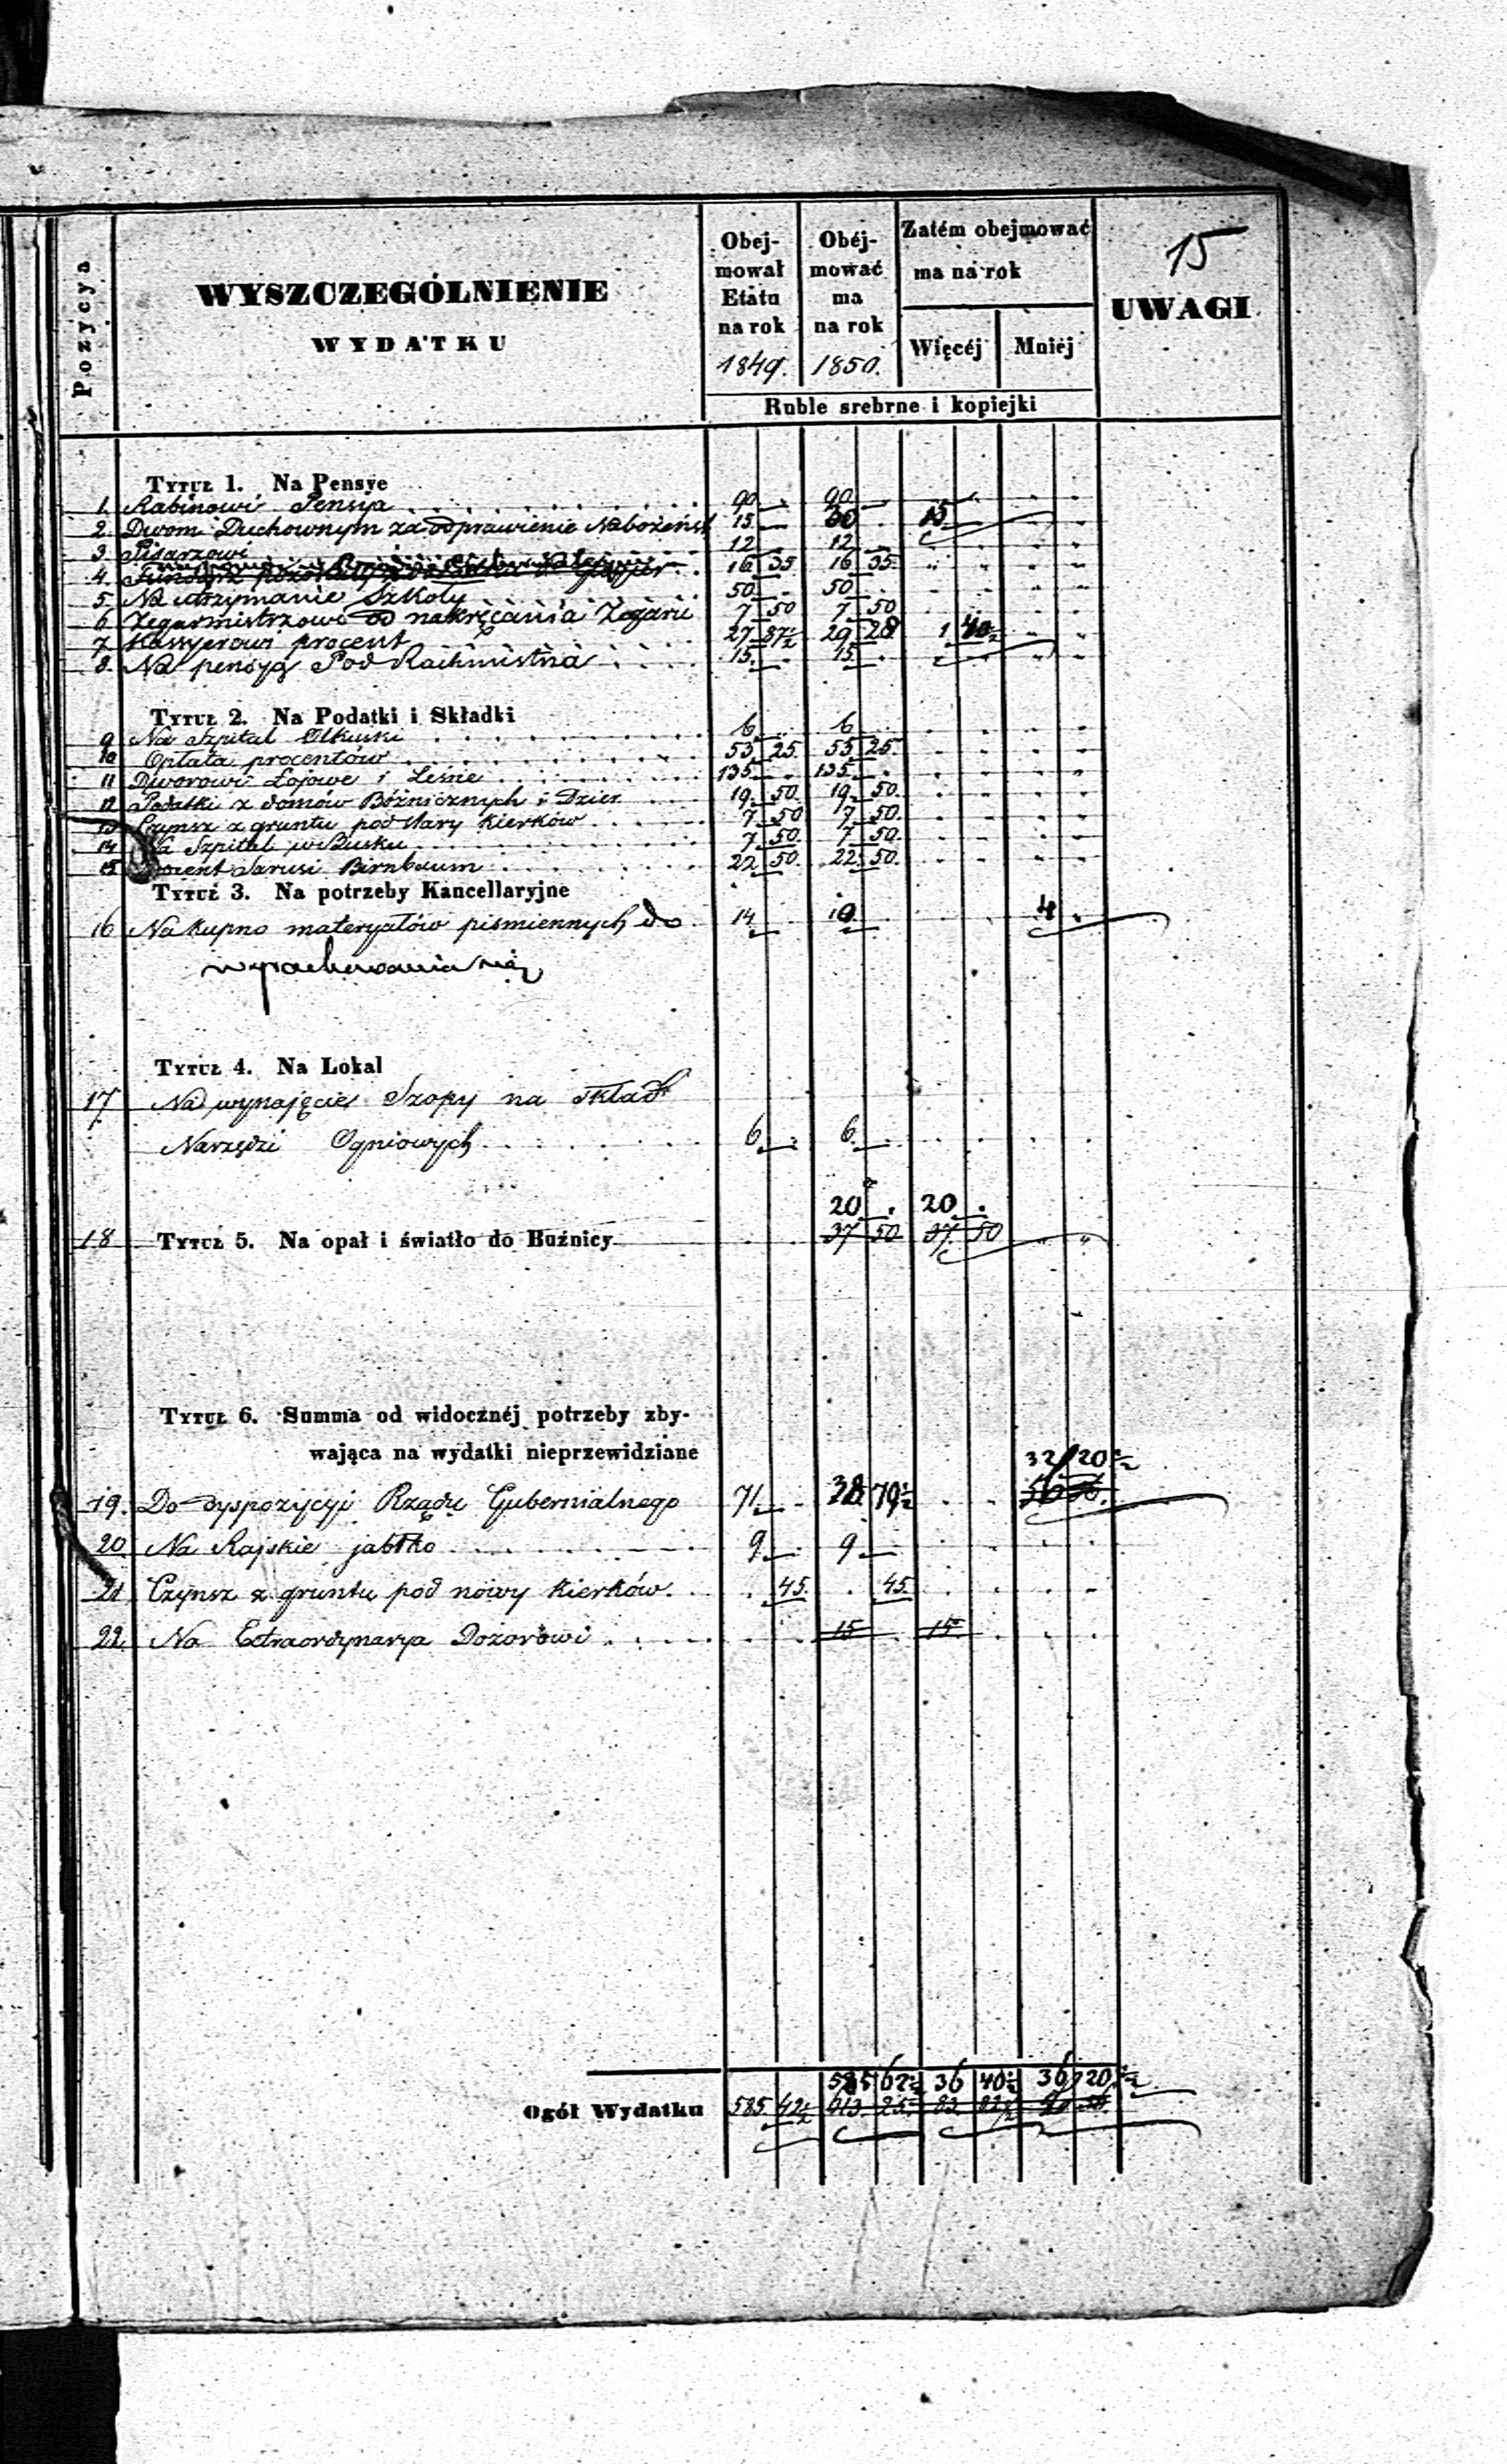 15
Pozycya
WYSZCZEGÓLNIENIE
WYDATKU
Obej-
mował
Etatu
na rok
1849.
Obéj-
mować
ma
na rok
1850.
Zatém obejmować
ma na rok
Więcéj
Mniéj
UWAGI
Ruble srebrne i kopiejki
Tytuł 1. Na Pensye
1. Rabinowi Pensija 90 90
2. Dwom Duchownym za odprawienie Nabożeńst 15 30 15
3. Pisarzowi 12 12
4. 16 35 16 35
5. Na utrzymanie Szkoły 50 50
6 Zegarmistrzowi od nakręcania Zegaru 7 50 7 50
7. Kassyerowi procent 27 87½ 29 28 1 40½
8. Na pensyą Pod Rachmistrza 15 15
Tytuł 2. Na Podatki i Składki
9 Na Szpital Olkuski 6 6
10 Opłata procentów 55 25 55 25
11 Dworowi Łojowe i Leśne 135 135
12 Podatki z domów Bóżnicznych i Dzier 19 50 19 50
13 Czynsz z gruntu pod stary Kierków 7 50 7 50
14 Na Szpital w Busku 7 50 7 50
15 Procent Sarusi Birnbaum 22 50 22 50
Tytuł 3. Na potrzeby Kancellaryjne
16 Na kupno materyałów piśmiennych do 14 10 4
wyrachowania się
Tytuł 4. Na Lokal
17 Na wynajęcie Szopy na skład
Narzędzi Ogniowych 6 6
20 20
18 Tytuł 5. Na opał i światło do Buźnicy 37 50 37 50
Tytuł 6. Summa od widocznéj potrzeby zby-
wająca na wydatki nieprzewidziane
32 20½
19. Do dyspozycyi Rządu Gubernialnego 71 38 79½
20 Na Rajskie jabłko 9 9
21 Czynsz z gruntu pod nowy Kierków 45 45
22. Na Extraordynarya Dozorowi 15 15
585 62½ 36 40½ 36 20½
Ogół Wydatku 585 42½ 613 25